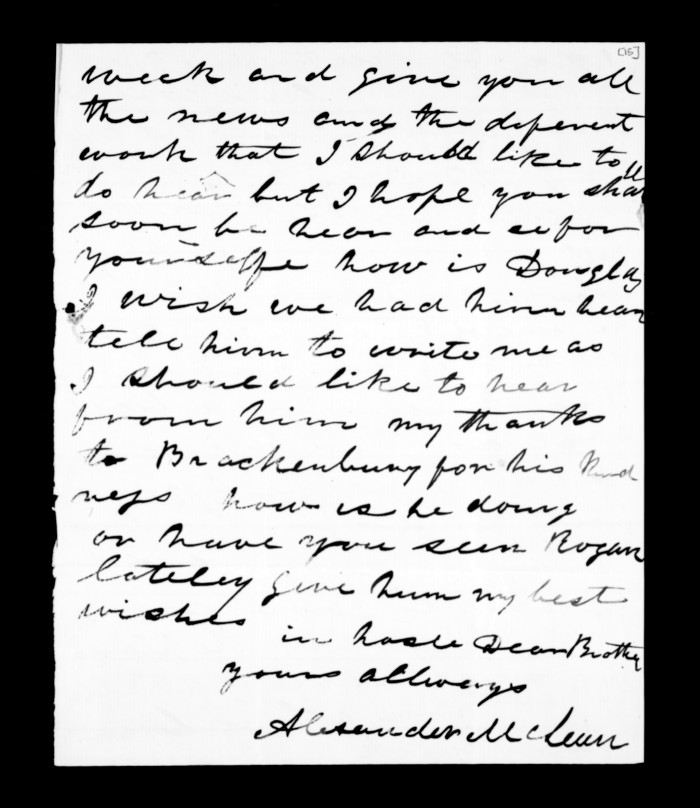 [15]
week and give you all
the news and the diferent
work that I should like to
do hear but I hope you shall
soon be hear and se for
yourselfe how is Douglas
I wish we had him hear
tell him to write me as
I should like to hear
from him my thanks
to Brackenbury for his kind
ness how is he doing
or have you seen Rogan
lateley give him my best
wishes
in haste Dear Brother
yours allways
Alexander McLean